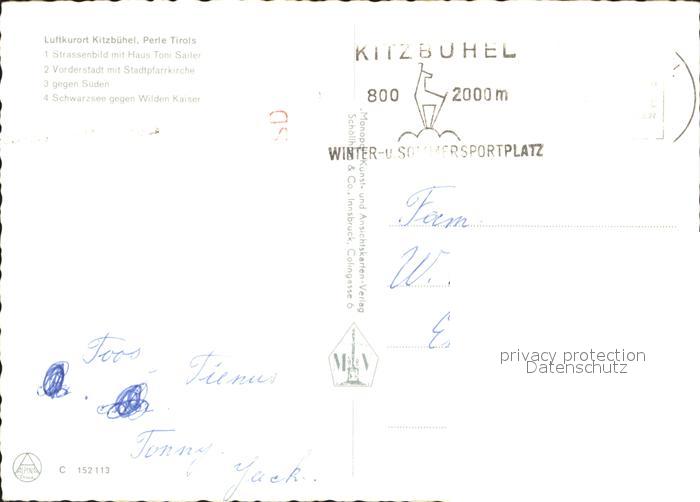 Luftkurort Kitzbühel, Perle Tirols
1 Strassenbild mit Haus Toni Sailer
2 Vorderstadt mit Stadtpfarrkirche
3 gegen Süden
4 Schwarzsee gegen Wilden Kaiser
KITZBÜHEL
800 2000m
WINTER-u. SOMMERSPORTPLATZ
"Monopol" Kunst- und Ansichtskarten-Verlag
& Co., Innsbruck, Colingasse 6
Fam.
W.
E
privacy protection
Datenschutz
Toos
Tienus
Tonny.
Jack.
ALPINA
C 152113